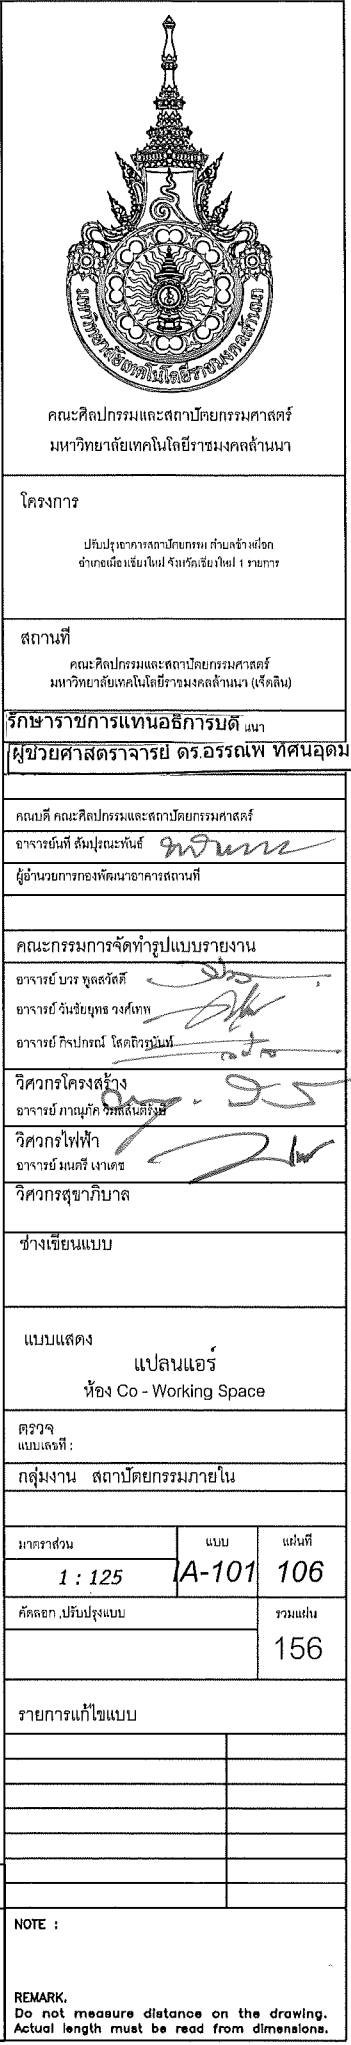 มหาวิทยาลัยเทคโนโลยีราชมงคลล้านนา
คณะศิลปกรรมและสถาปัตยกรรมศาสตร์
มหาวิทยาลัยเทคโนโลยีราชมงคลล้านนา
โครงการ
ปรับปรุงอาคารสถาปัตยกรรม ตำบลช้างเผือก
อำเภอเมืองเชียงใหม่ จังหวัดเชียงใหม่ 1 รายการ
สถานที่
คณะศิลปกรรมและสถาปัตยกรรมศาสตร์
มหาวิทยาลัยเทคโนโลยีราชมงคลล้านนา (เจ็ดลิน)
รักษาราชการแทนอธิการบดี
ผู้ช่วยศาสตราจารย์ ดร.อรรณพ ทัศนอุดม
คณบดี คณะศิลปกรรมและสถาปัตยกรรมศาสตร์
อาจารย์นที สัมปุรณะพันธ์
ผู้อำนวยการกองพัฒนาอาคารสถานที่
คณะกรรมการจัดทำรูปแบบรายงาน
อาจารย์ บวร พูลสวัสดิ์
อาจารย์ วันชัยยุทธ วงศ์เทพ
อาจารย์ กิจปกรณ์
วิศวกรโครงสร้าง
อาจารย์ ภาณุภัค
วิศวกรไฟฟ้า
อาจารย์ มนตรี เงาเดช
วิศวกรสุขาภิบาล
ช่างเขียนแบบ
แบบแสดง
แปลนแอร์
ห้อง Co - Working Space
ตรวจ
แบบเลขที่ :
กลุ่มงาน สถาปัตยกรรมภายใน
มาตราส่วน แบบ แผ่นที่
1 : 125 IA-101 106
คัดลอก ,ปรับปรุงแบบ รวมแผ่น
156
รายการแก้ไขแบบ
NOTE :
REMARK.
Do not measure distance on the drawing.
Actual length must be read from dimensions.